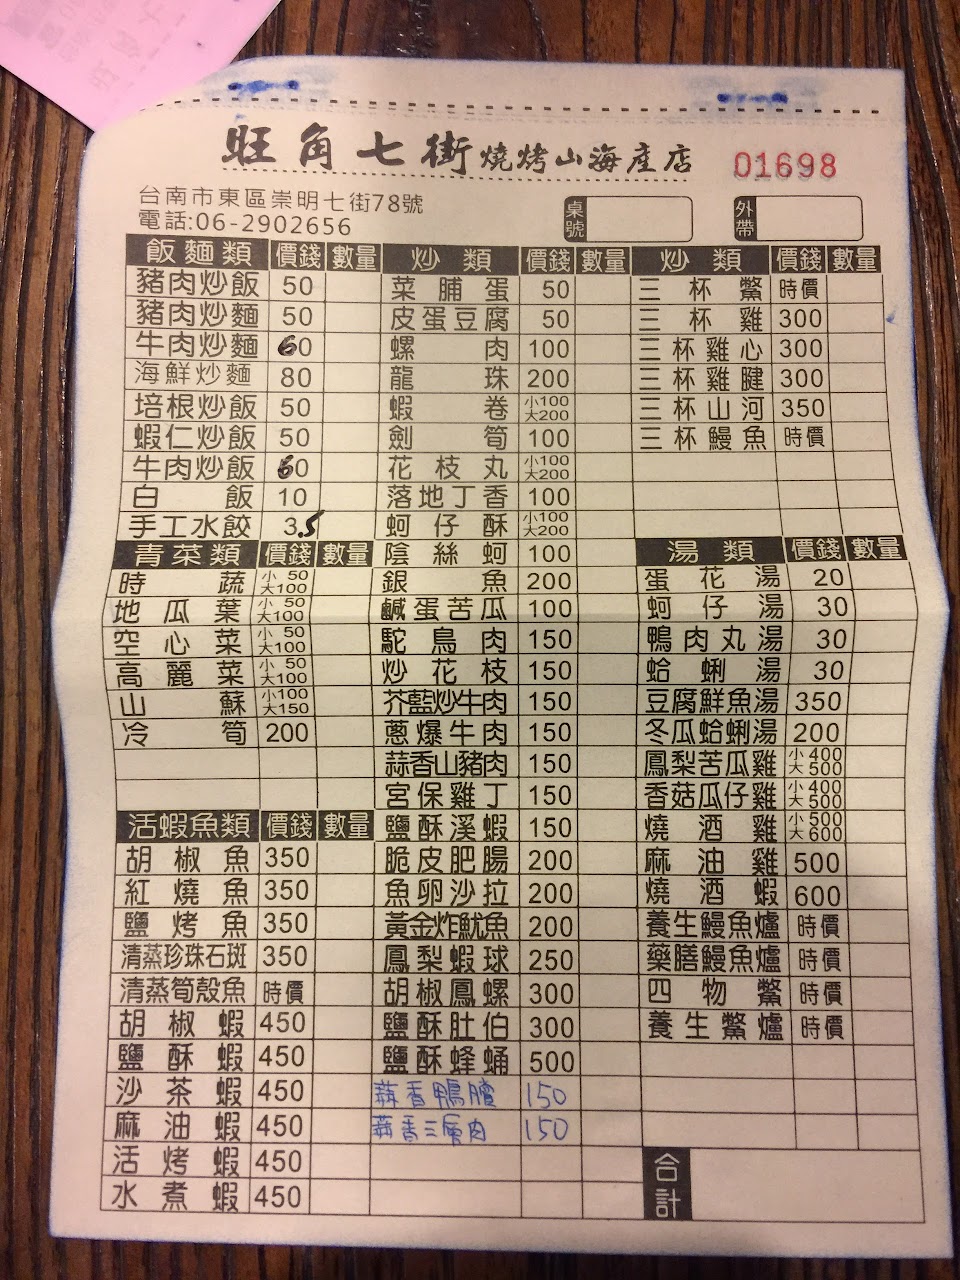 旺角七街燒烤山海產店 01698
台南市東區崇明七街78號
電話:06-2902656
桌號
外帶
飯麵類 價錢 數量
豬肉炒飯 50
豬肉炒麵 50
牛肉炒麵 60
海鮮炒麵 80
培根炒飯 50
蝦仁炒飯 50
牛肉炒飯 60
白飯 10
手工水餃 3.5
青菜類 價錢 數量
時蔬 小50 大100
地瓜葉 小50 大100
空心菜 小50 大100
高麗菜 小50 大100
山蘇 小100 大150
冷筍 200
活蝦魚類 價錢 數量
胡椒魚 350
紅燒魚 350
鹽烤魚 350
清蒸珍珠石斑 350
清蒸筍殼魚 時價
胡椒蝦 450
鹽酥蝦 450
沙茶蝦 450
麻油蝦 450
活烤蝦 450
水煮蝦 450
炒類 價錢 數量
菜脯蛋 50
皮蛋豆腐 50
螺肉 100
龍珠 200
蝦卷 小100 大200
劍筍 100
花枝丸 小100 大200
落地丁香 100
蚵仔酥 小100 大200
陰絲蚵 100
銀魚 200
鹹蛋苦瓜 100
駝鳥肉 150
炒花枝 150
芥藍炒牛肉 150
蔥爆牛肉 150
蒜香山豬肉 150
宮保雞丁 150
鹽酥溪蝦 150
脆皮肥腸 200
魚卵沙拉 200
黃金炸魷魚 200
鳳梨蝦球 250
胡椒鳳螺 300
鹽酥肚伯 300
鹽酥蜂蛹 500
蒜香鴨賸 150
蒜香三層肉 150
炒類 價錢 數量
三杯鱉 時價
三杯雞 300
三杯雞心 300
三杯雞腱 300
三杯山河 350
三杯鰻魚 時價
湯類 價錢 數量
蛋花湯 20
蚵仔湯 30
鴨肉丸湯 30
蛤蜊湯 30
豆腐鮮魚湯 350
冬瓜蛤蜊湯 200
鳳梨苦瓜雞 小400 大500
香菇瓜仔雞 小400 大500
燒酒雞 小500 大600
麻油雞 500
燒酒蝦 600
養生鰻魚爐 時價
藥膳鰻魚爐 時價
四物鱉 時價
養生鱉爐 時價
合計